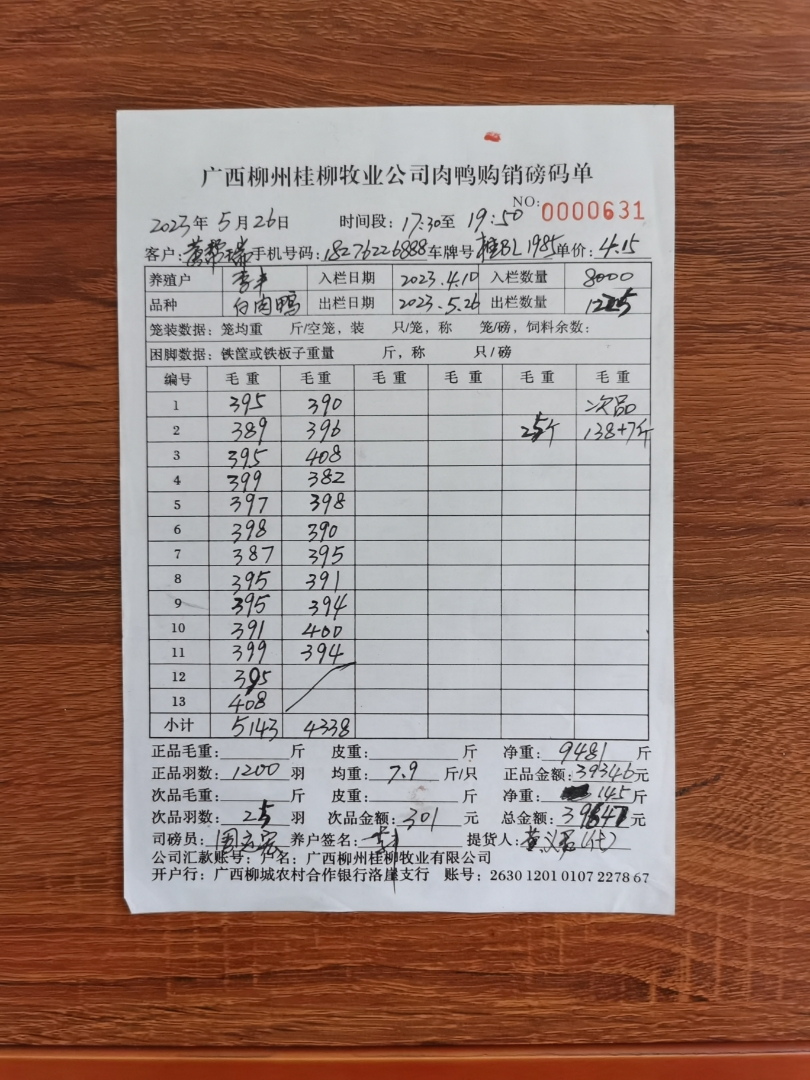 广西柳州桂柳牧业公司肉鸭购销磅码单
NO: 0000631
2023年 5月26日 时间段: 17:30至 19:50
客户: 手机号码: 18276226888 车牌号 桂BL1985 单价: 4.15
养殖户 李丰 入栏日期 2023.4.10 入栏数量 8000
品种 白肉鸭 出栏日期 2023.5.26 出栏数量 1225
笼装数据: 笼均重 斤/空笼, 装 只/笼, 称 笼/磅, 饲料余数:
困脚数据: 铁筐或铁板子重量 斤, 称 只/磅
编号 毛重 毛重 毛重 毛重 毛重 毛重
1 395 390 次品
2 389 396 25斤 138+7斤
3 395 408
4 399 382
5 397 398
6 398 390
7 387 395
8 395 391
9 395 394
10 391 400
11 399 394
12 395
13 408
小计 5143 4338
正品毛重: 斤 皮重: 斤 净重: 9481 斤
正品羽数: 1200 羽 均重: 7.9 斤/只 正品金额: 39346元
次品毛重: 斤 皮重: 斤 净重: 145斤
次品羽数: 25 羽 次品金额: 301 元 总金额: 39647元
司磅员: 养户签名: 提货人: (代)
公司汇款账号: 户名: 广西柳州桂柳牧业有限公司
开户行: 广西柳城农村合作银行洛崖支行 账号: 2630 1201 0107 2278 67